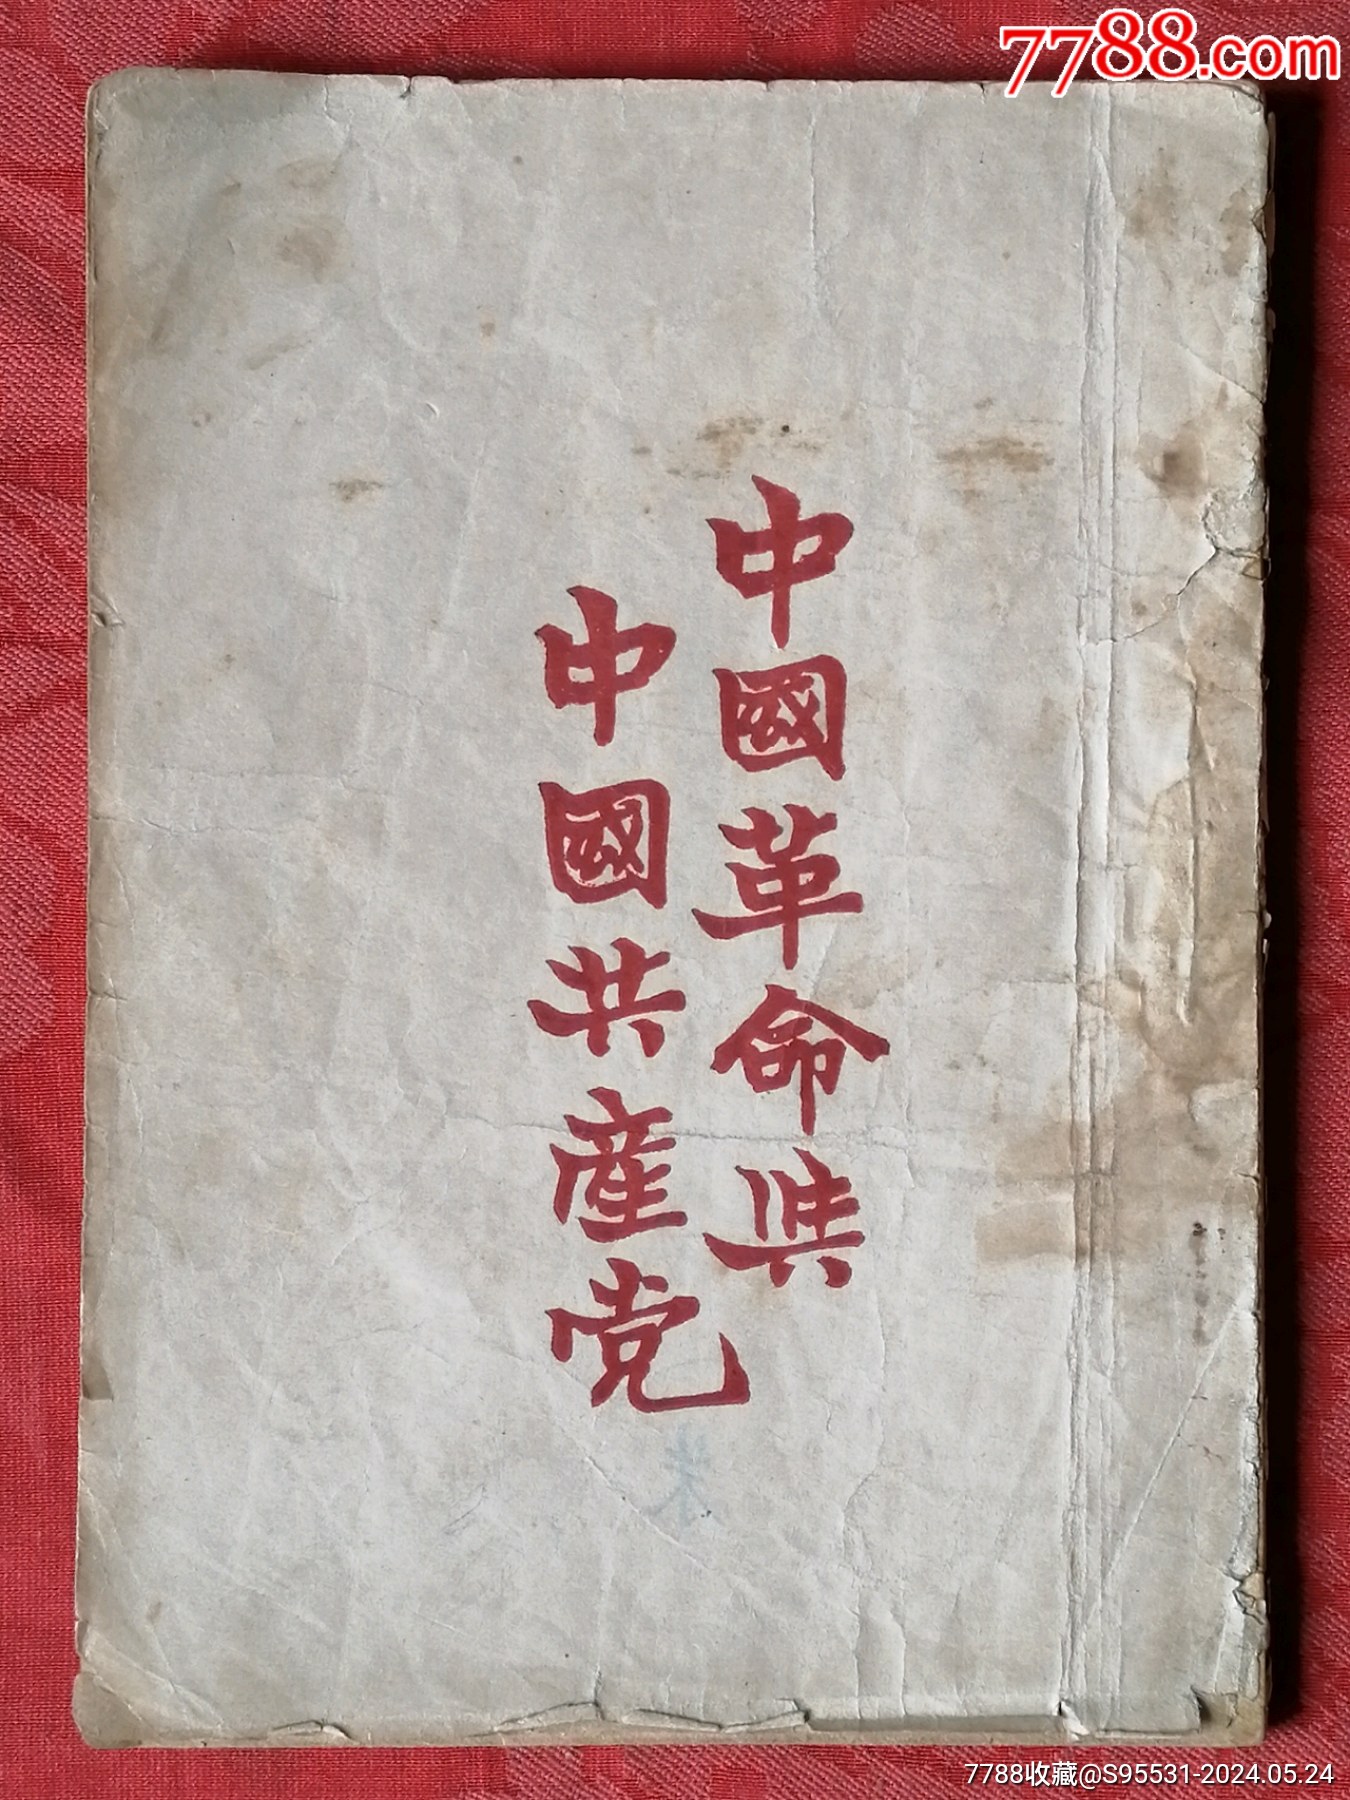 7788.com
中國革命與
中國共產党
7788收藏@S95531-2024.05.24